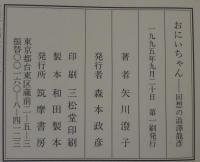 おにいちゃん——回想の澁澤龍彥
一九九五年九月二十日　第一刷発行
著者　矢川澄子
発行者　森本政彦
印刷　三松堂印刷
製本　和田製本
発行所　筑摩書房
東京都台東区蔵前二-五-三
振替〇〇一六〇-八-四一二